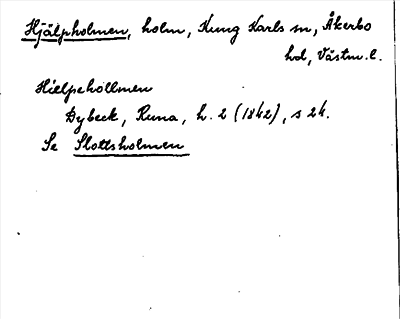 Hjälpholmen, holm, Kung Karls sn, Åkerbo
hd, Västm. l.
Hielpehollmen
Dybeck, Runa, h. 2 (1842), s 24.
Se Slottsholmen